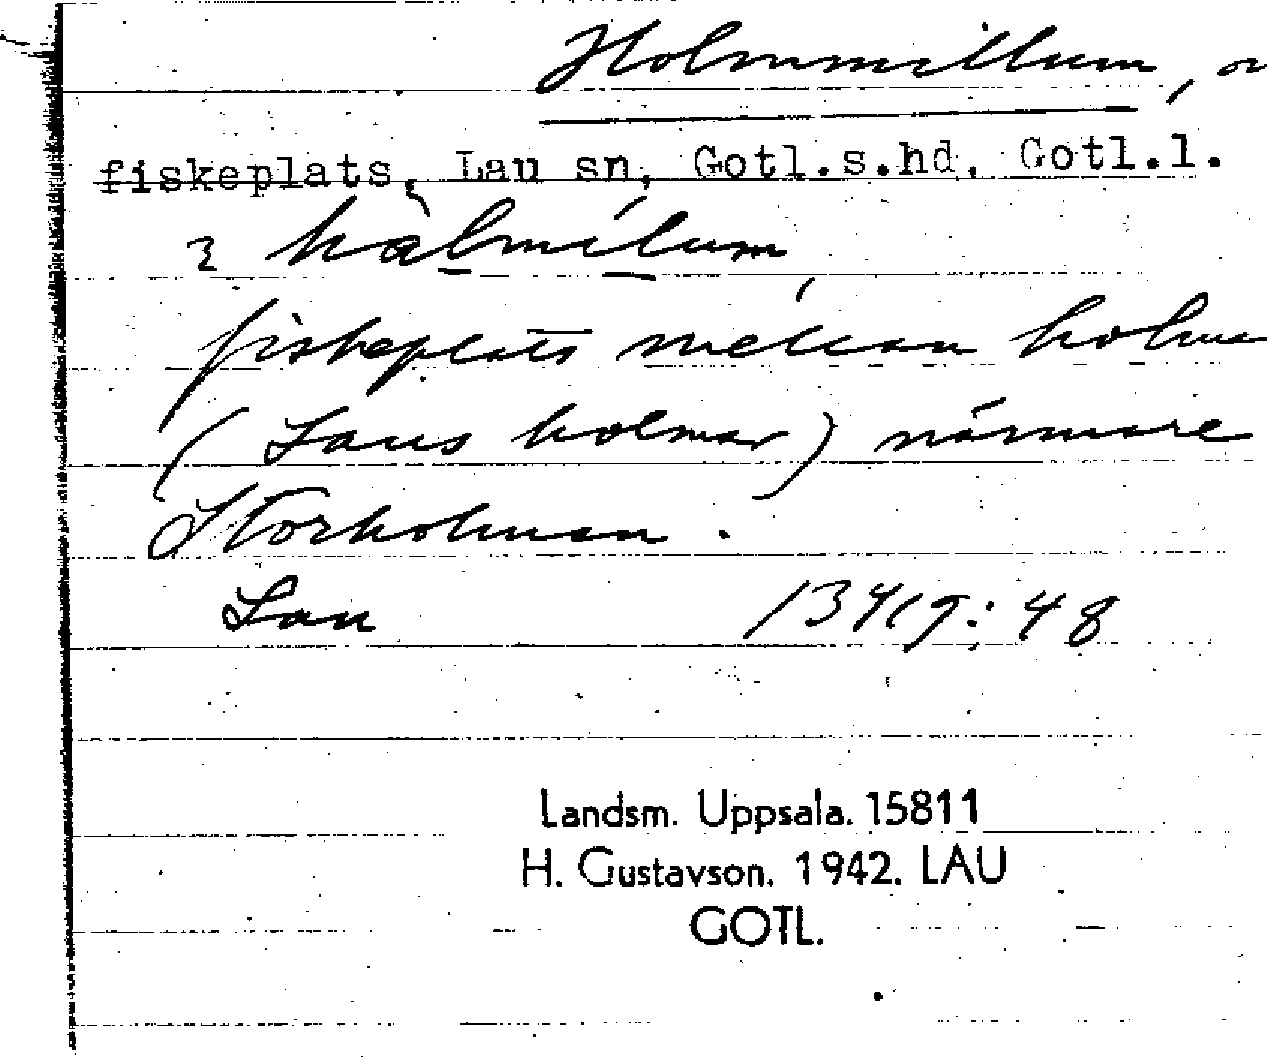 Holmmillum,
fiskeplats, Lau sn, Gotl.s.hd, Gotl.l.
hålmilum
fiskeplats mellan holma
(Laus holmar) närmare
Storholmen.
Lau 13419:48
Landsm. Uppsala. 15811
H. Gustavson. 1942. LAU
GOTL.